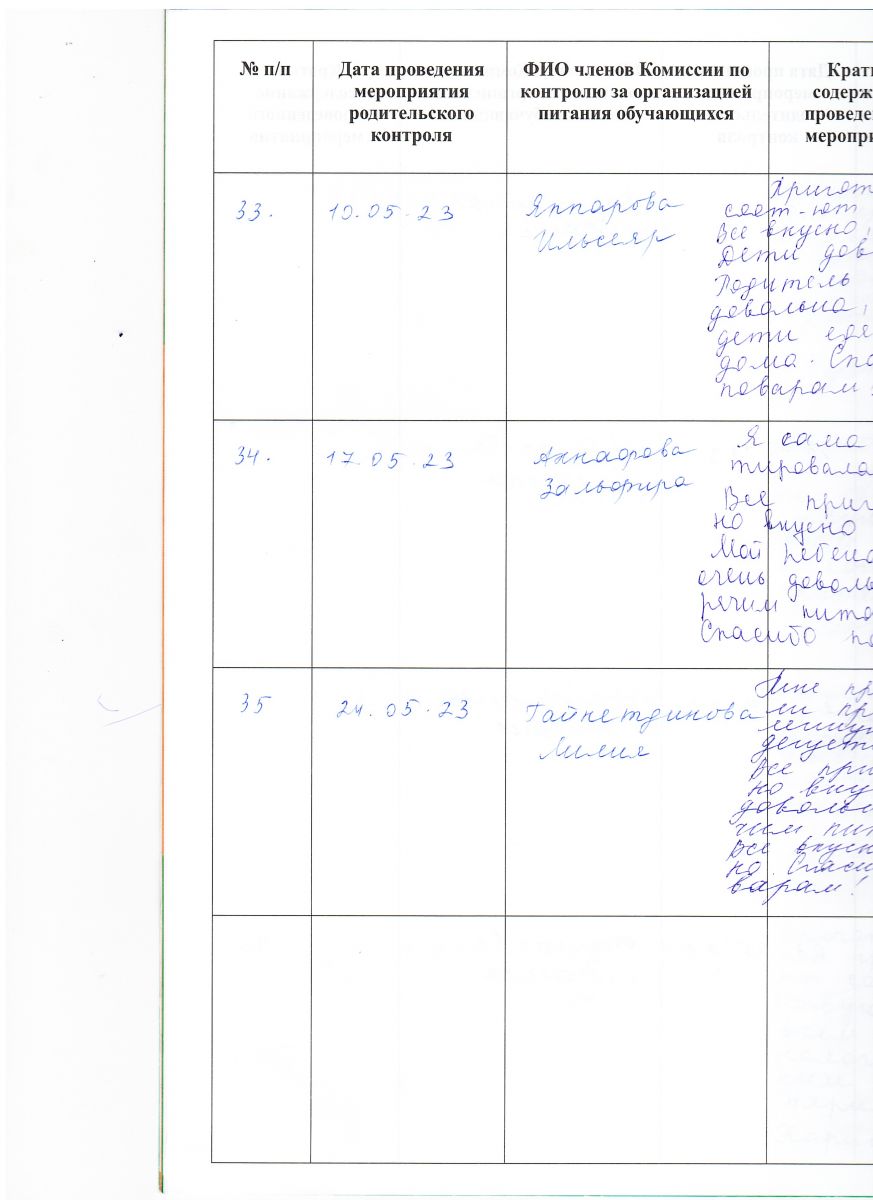 № п/п
Дата проведения
мероприятия
родительского
контроля
ФИО членов Комиссии по
контролю за организацией
питания обучающихся
Кратк
содерж
проведе
меропри
33.
10.05.23
Яппарова
Ильсеяр
Пригот
соот-ют
Все вкусно,
Дети дов
Родитель
довольна,
дети еде
дома. Спа
поварам
34.
17.05.23
Зальфира
Я сама
тировала
Все приг
но вкусно
Мой ребено
очень доволь
речим пита
Спасибо по
35
24.05.23
Гайнетдинова
Лилия
Мне пр
ли пр
дегуст
Все при
но вку
доволь
чим пит
Все вкусн
но. Спаси
варам!